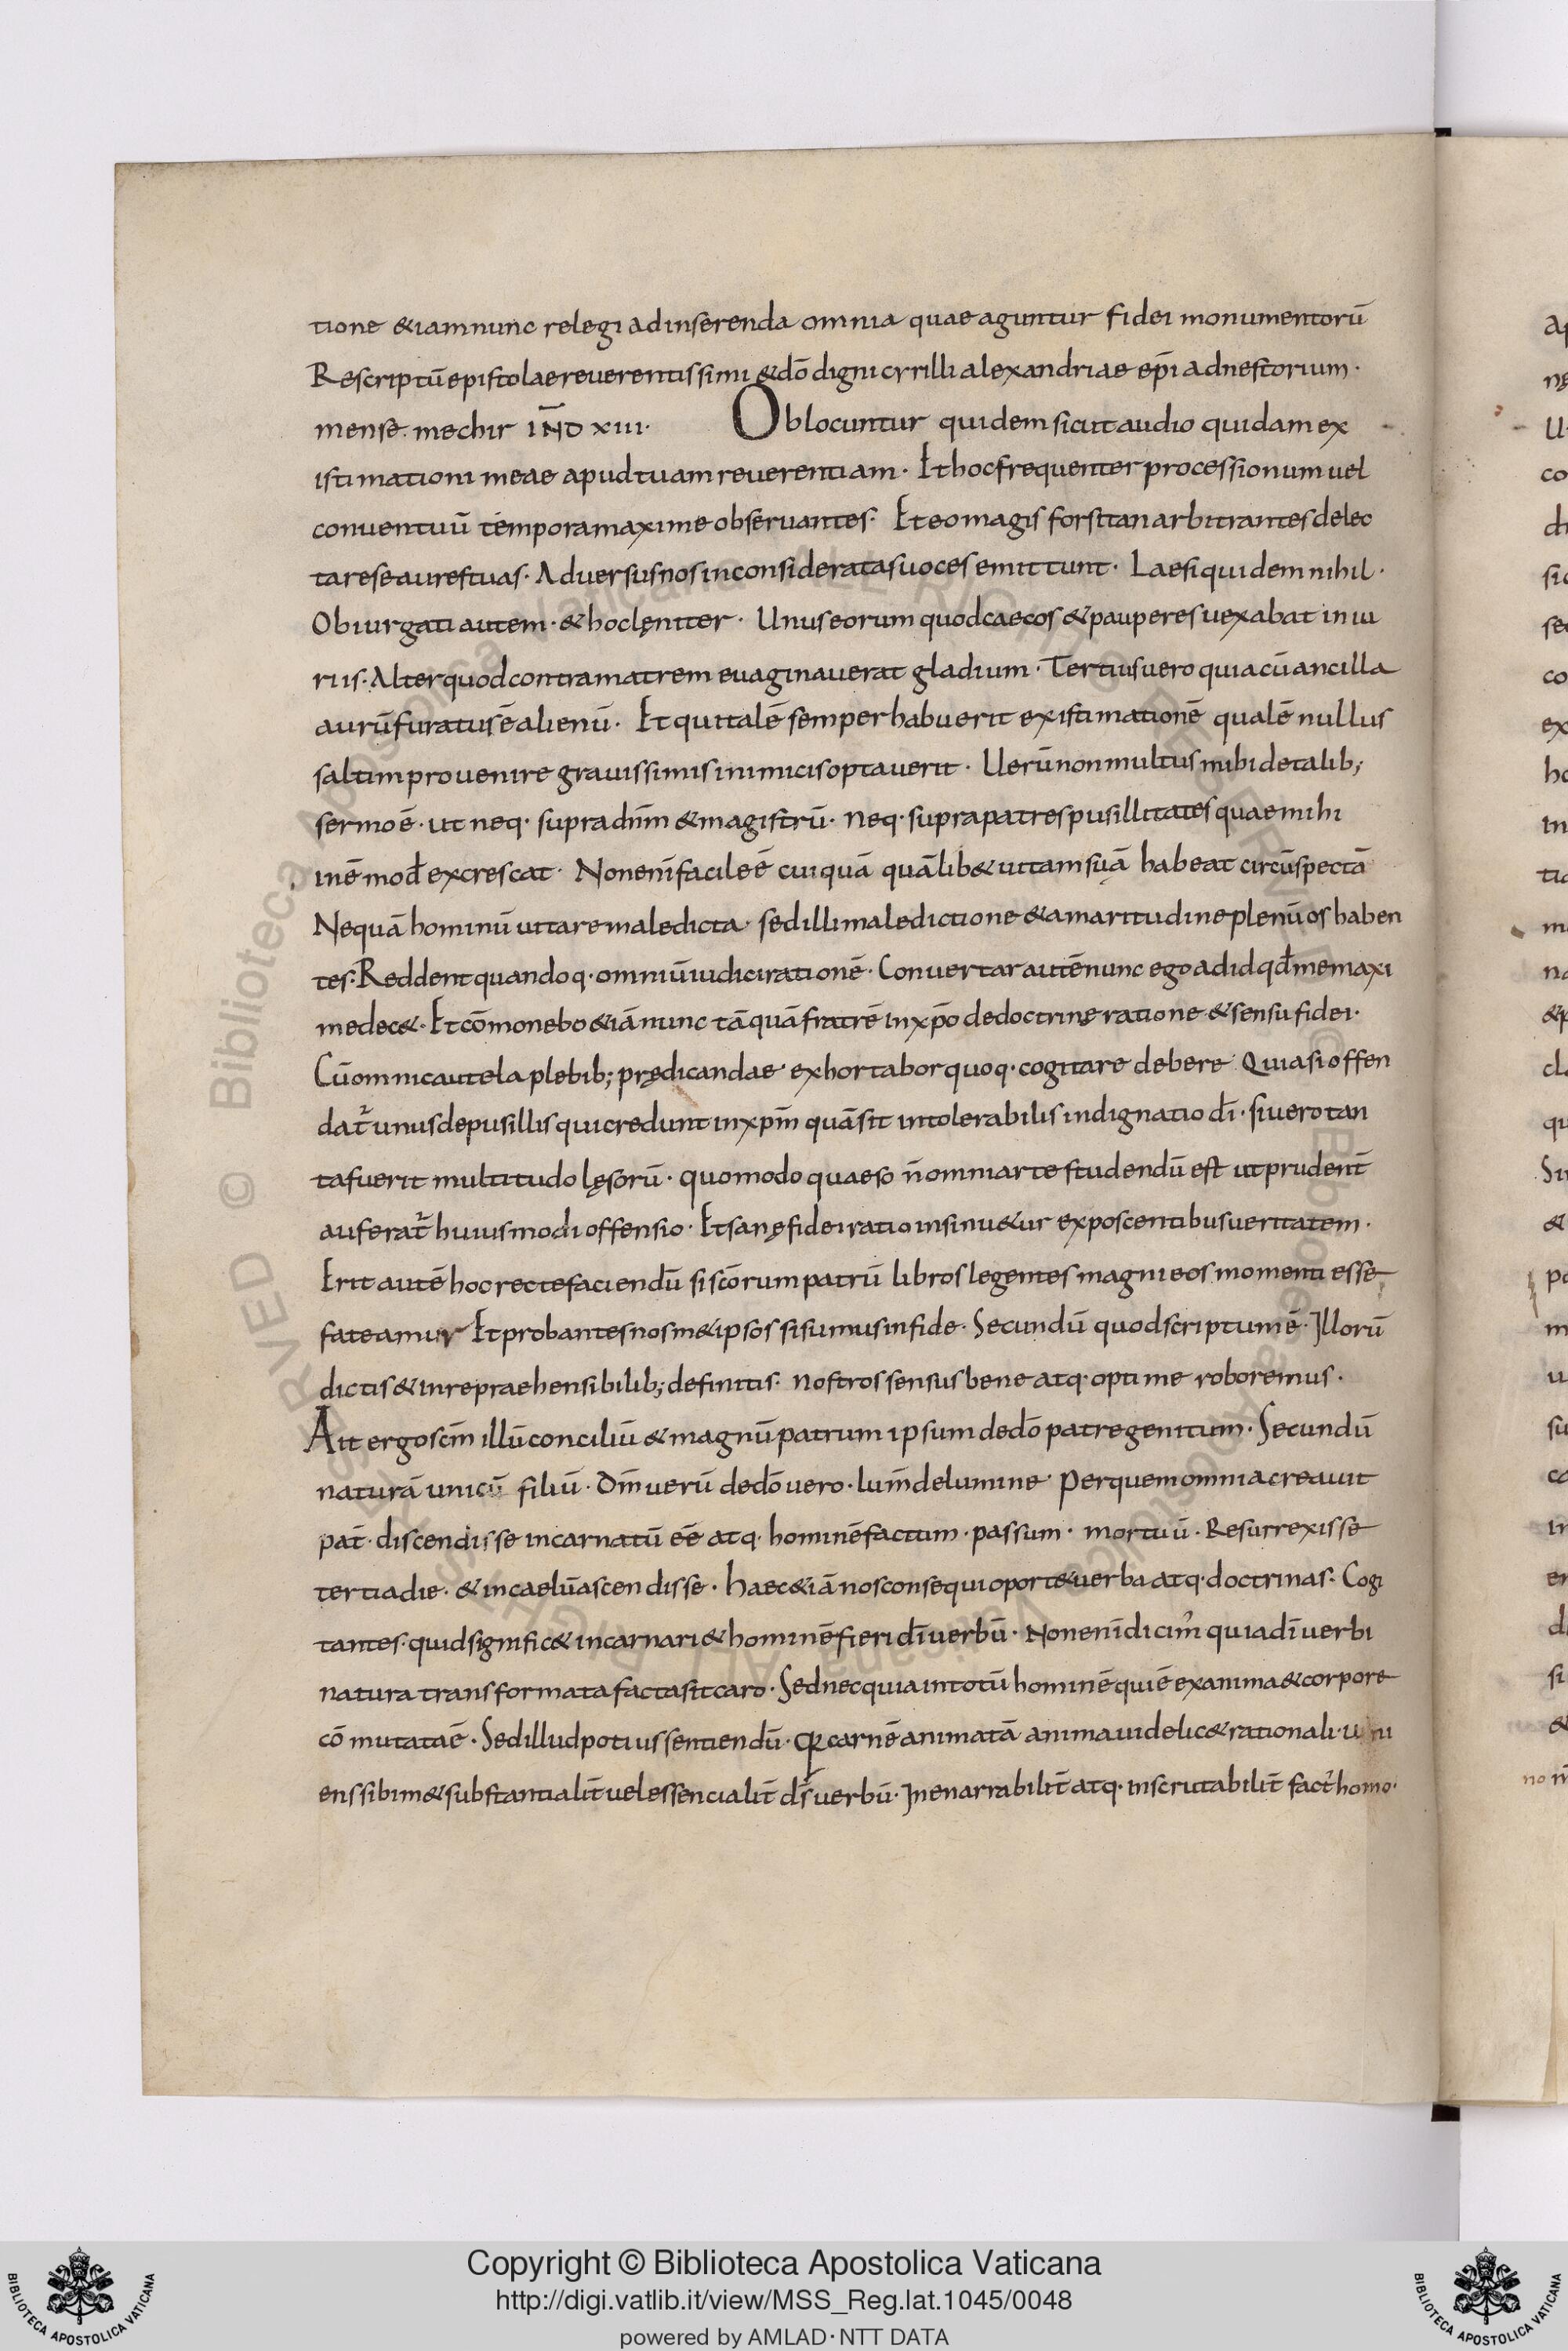 tione & iam nunc relegi ad inserenda omnia quae aguntur fidei monumentorū
Rescriptū epistolae reuerentissimi & dō digni cyrilli alexandriae epī ad nestorium ·
mense mechir IND̄ XIII · Oblocuntur quidem sicut audio quidam ex
istimationi meae apud tuam reuerentiam · Et hoc frequenter processionum uel
conuentuū tempora maxime obseruantes · Et eo magis forsitan arbitrantes delec
tare se aures tuas · Aduersus nos inconsideratas uoces emittunt · Laesi quidem nihil ·
Obiurgati autem · & hoc lęniter · Unus eorum quod caecos & pauperes uexabat iniu
riis · Alter quod contra matrem euaginauerat gladium · Tertius uero quia cū ancilla
aurū furatus ē alienū · Et qui talē semper habuerit existimationē qualē nullus
saltim prouenire grauissimis inimicis optauerit · Uerū non multus mihi de talib;
sermo ē · ut neq· supra dn̄m & magistrū · neq· supra patres pusillitates quae mihi
inē mod̄ excrescat · Non enī facile ē cuiquā quālib& uitam suā habeat circūspectā
Nequā hominū uitare maledicta · sed illi maledictione & amaritudine plenū os haben
tes · Reddent quandoq· omniū iudici rationē · Conuertar autē nunc ego ad id qd̄ me maxi
me dec& · Et cōmonebo & iā nunc tāquā fratrē in xp̄o de doctrinę ratione & sensu fidei ·
Cū omni cautela plebib; prędicandae · exhortabor quoq· cogitare debere Quia si offen
dat̄ unus de pusillis qui credunt in xp̄m quā sit intolerabilis indignatio dī · si uero tan
ta fuerit multitudo lęsorū · quomodo quaeso n̄ omni arte studendū est ut prudent̄
auferat̄ huiusmodi offensio · Et sanę fidei ratio insinu&ur exposcentibus ueritatem ·
Erit autē hoc recte faciendū si scōrum patrū libros legentes magni eos momenti esse
fateamur Et probantes nosm&ipsos si sumus in fide · Secundū quod scriptum ē · Illorū
dictis & inrepraehensibilib; definitis · nostros sensus bene atq· optime roboremus ·
Ait ergo scm̄ illū conciliū & magnū patrum ipsum de dō patre genitum · Secundū
naturā unicū filiū · Dm̄ uerū de dō uero · lum̄ de lumine · Per quem omnia creauit
pat̄ · discendisse incarnatū eē atq· hominē factum · passum · mortuū · Resurrexisse
tertia die · & in caelū ascendisse · haec & iā nos consequi oport& uerba atq· doctrinas · Cogi
tantes · quid signific& incarnari & hominē fieri dī uerbū · Non enī dicim̄ quia dī uerbi
natura transformata facta sit caro · Sed nec quia in totū hominē qui ē ex anima & corpore
cō mutata ē · Sed illud potius sentiendū · qƥ carnē animatā anima uidelic& rationali · u ni
ens sibi m& substantialit̄ uel essencialit̄ ds̄ uerbū · Inenarrabilit̄ atq· inscrutabilit̄ fact̄ homo ·
Copyright © Biblioteca Apostolica Vaticana
http://digi.vatlib.it/view/MSS_Reg.lat.1045/0048
powered by AMLAD · NTT DATA